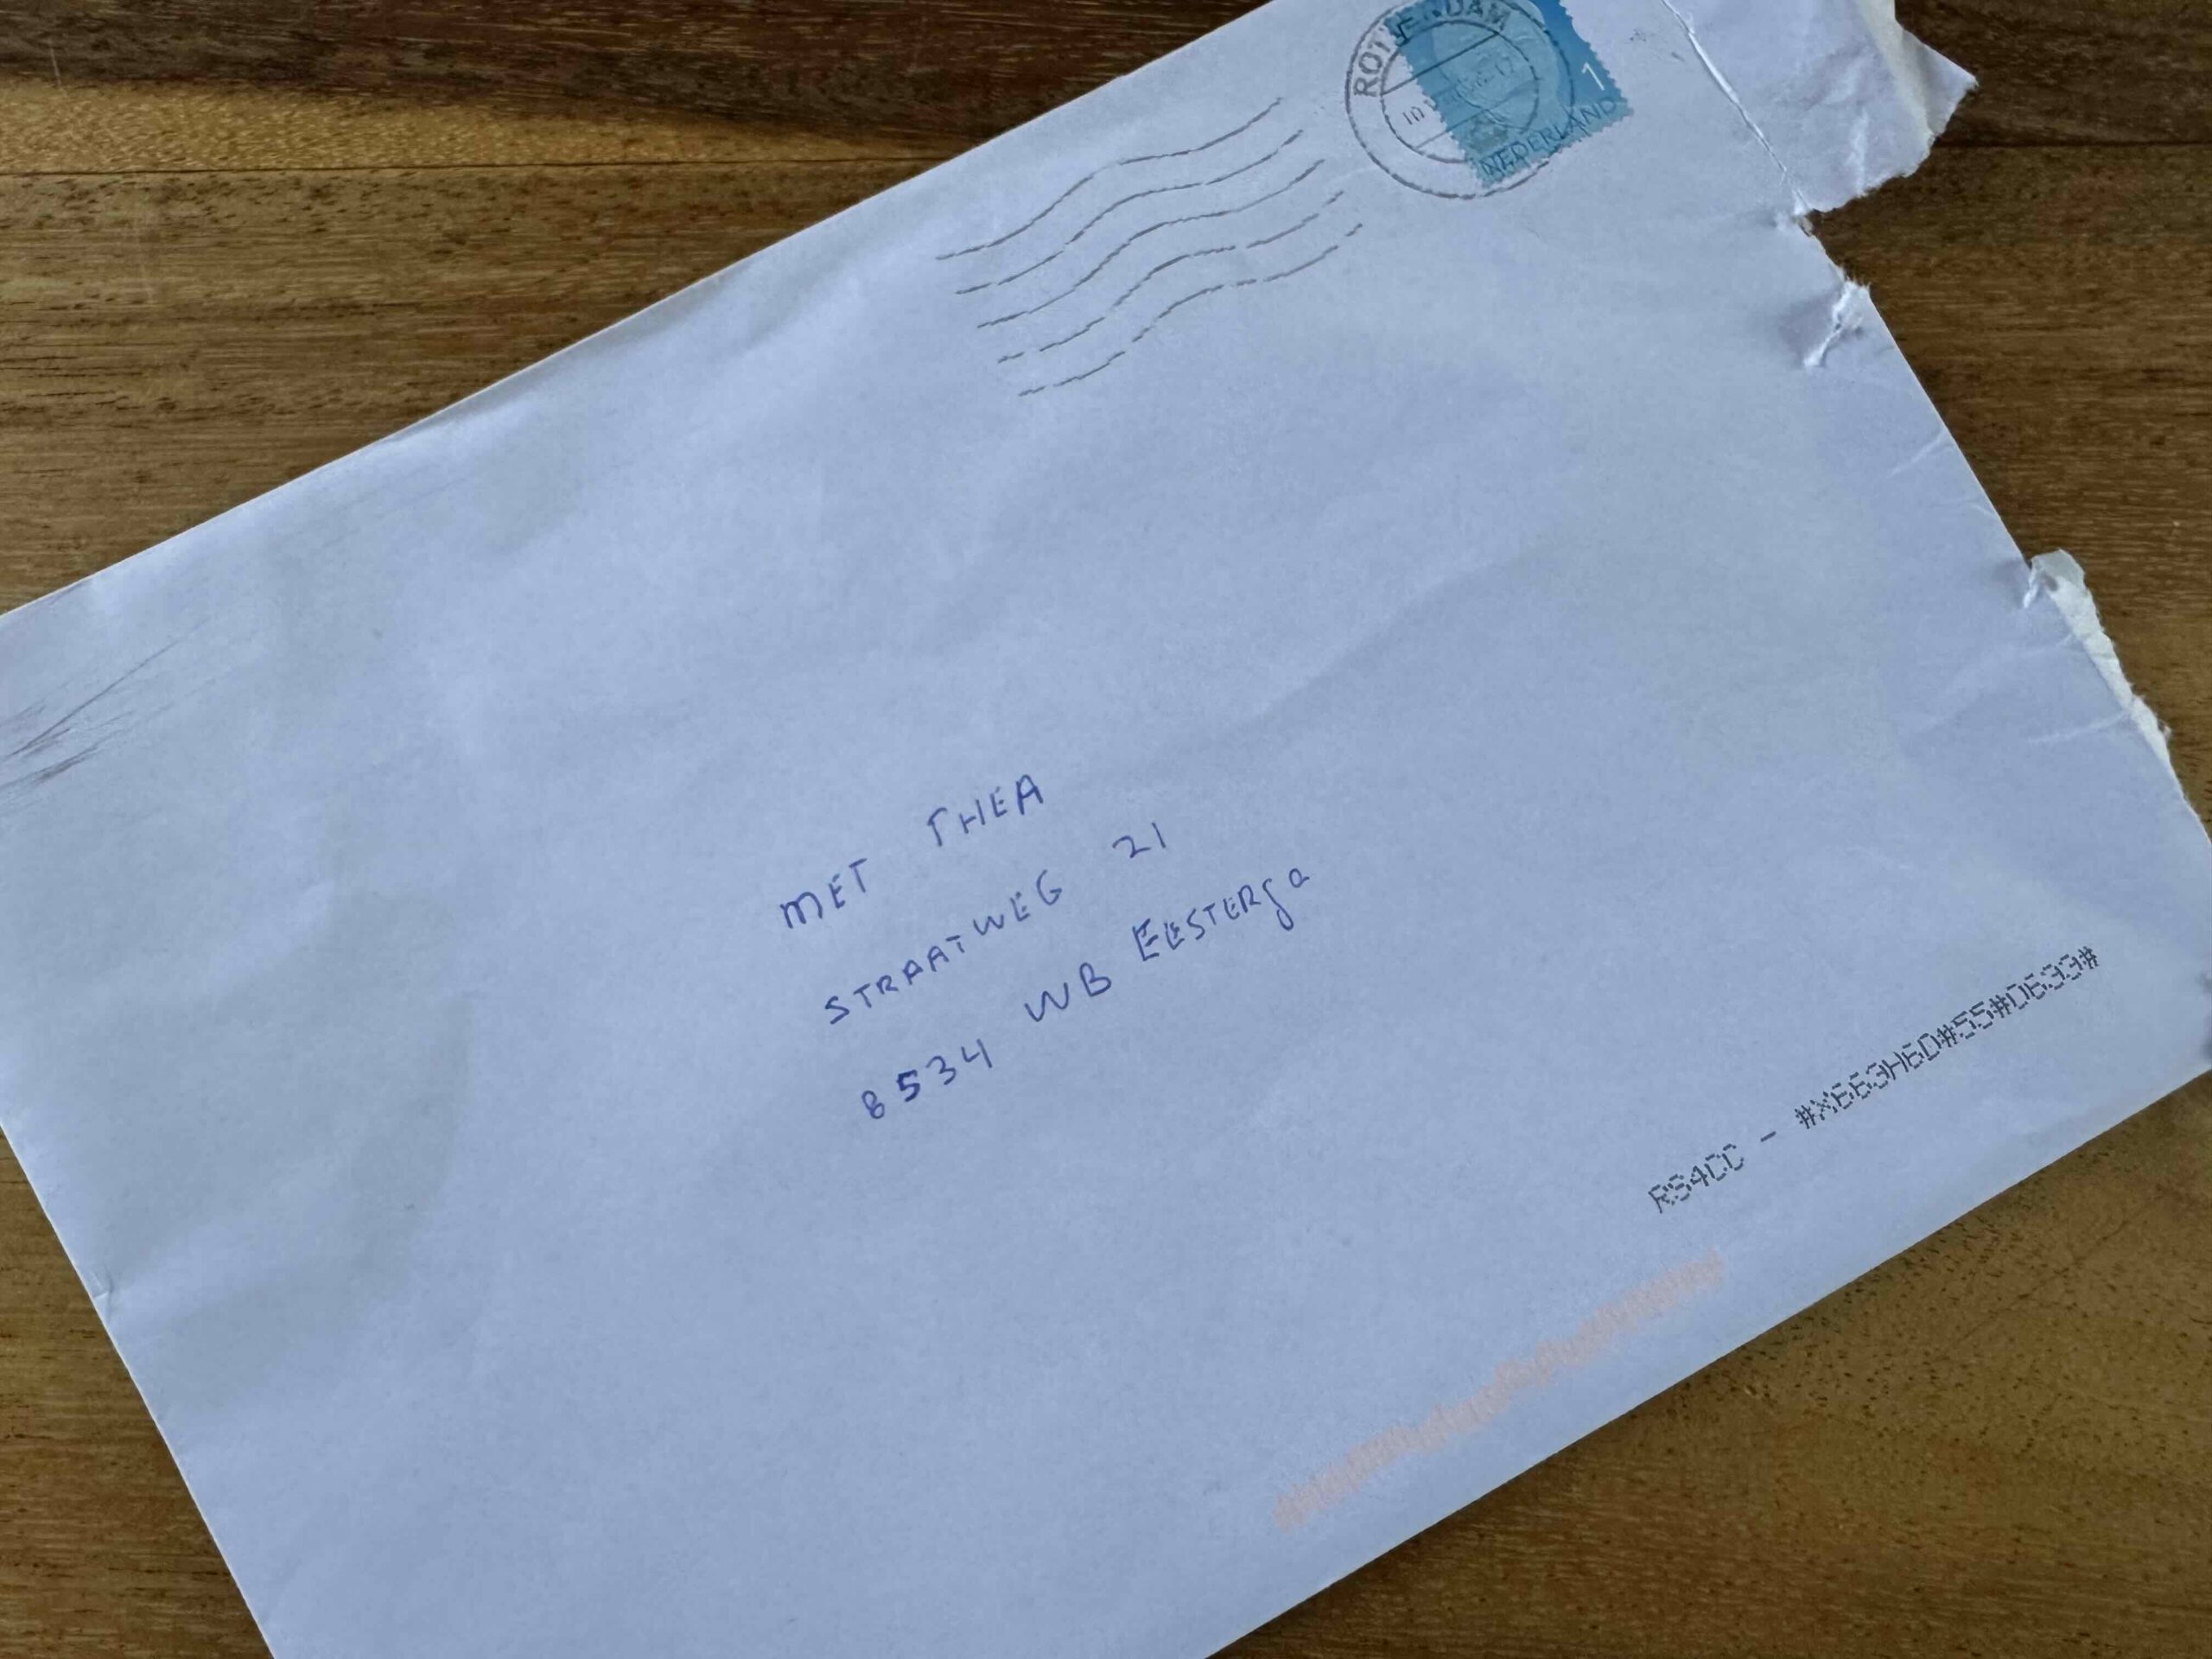 ROTTERDAM
1
NEDERLAND
MET THEA
STRAATWEG 21
8534 WB EESTERga
RS4CC - #X663H6D#55#D633#